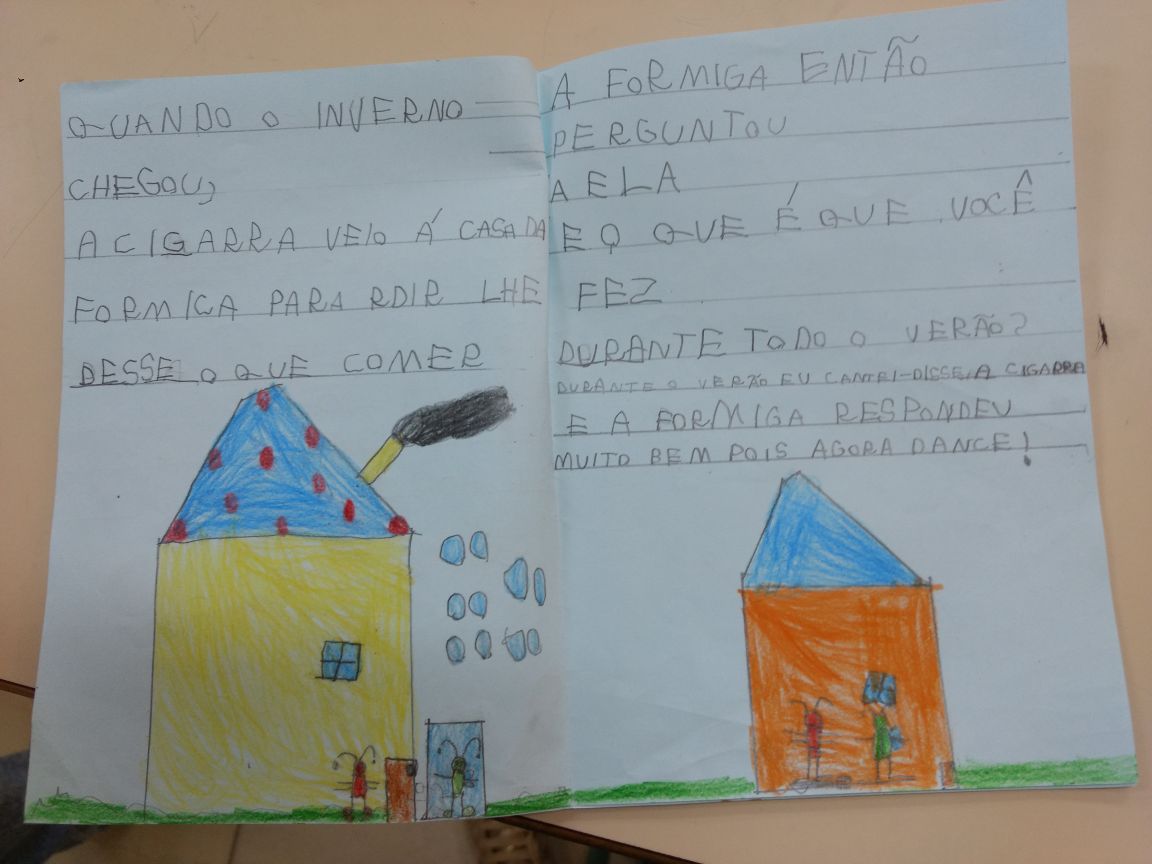 QUANDO O INVERNO
CHEGOU,
A CIGARRA VEIO Á CASA DA
FORMIGA PARA RDIR LHE
DESSE O QUE COMER
A FORMIGA ENTÃO
PERGUNTOU
A ELA
E O QUE É QUE VOCÊ
FEZ
DURANTE TODO O VERÃO?
DURANTE O VERÃO EU CANTEI-DISSE A CIGARRA
E A FORMIGA RESPONDEU
MUITO BEM POIS AGORA DANCE!